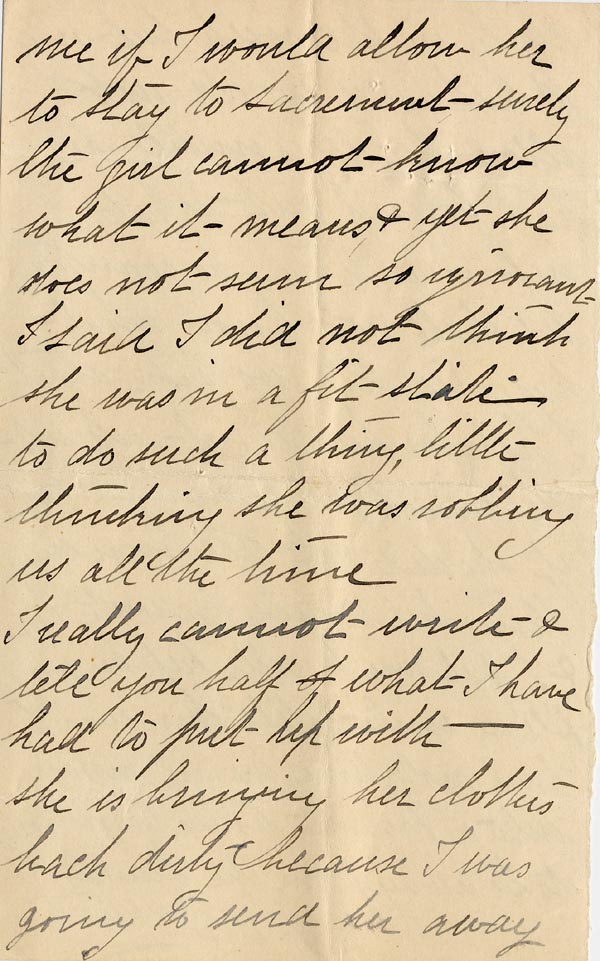 me if I would allow her
to stay to Sacrement - surely
the girl cannot - know
what it - means, & yet she
does not seem so ignorant -
I said I did not think
she was in a fit state
to do such a thing, little
thinking she was robbing
us all the time
I really cannot write - &
tell you half of what I have
had to put up with —
she is bringing her clothes
back dirty because I was
going to send her away